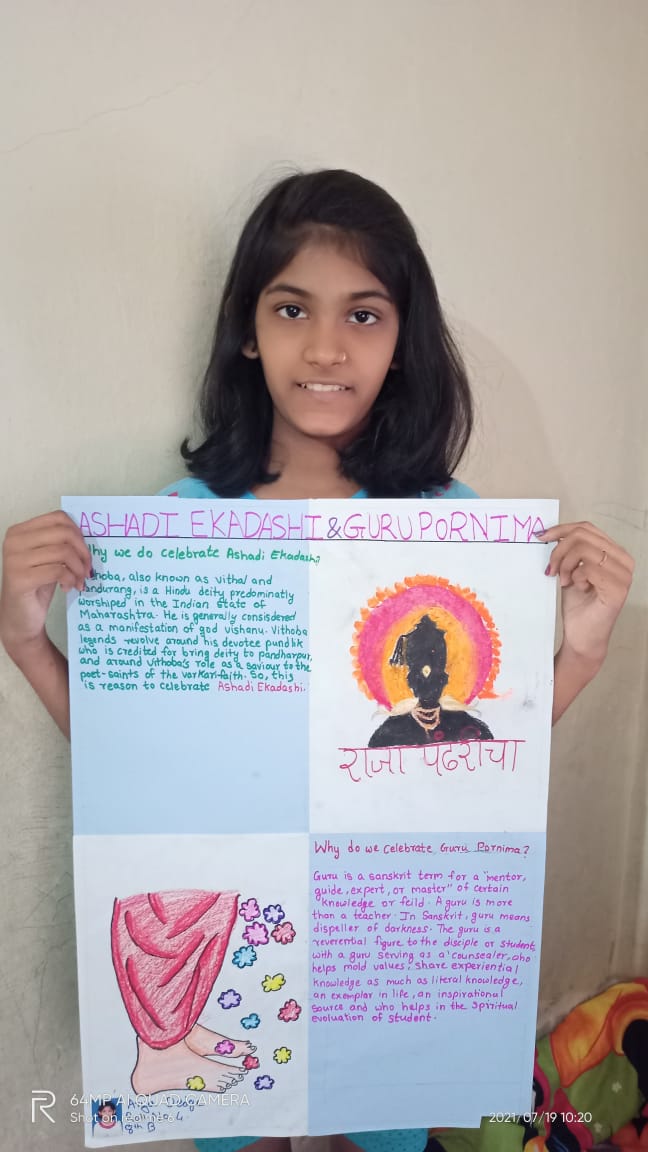 ASHADI EKADASHI & GURU PORNIMA
Why we do celebrate Ashadi Ekadashi?
also known as vithal and
Pandurang, is a Hindu deity predominatly
worshiped in the Indian state of
Maharashtra. He is generally consisdered
as a manifestation of god vishanu. Vithoba
legends revolve around his devotee pundlik
who is credited for bring deity to pandharpur,
and around vithoba's role as a saviour to the
poet-saints of the varkari-faith. So, this
is reason to celebrate Ashadi Ekadashi.
राजा पंढरीचा
Why do we celebrate Guru Pornima?
Guru is a sanskrit term for a "mentor,
guide, expert, or master" of certain
knowledge or feild. A guru is more
than a teacher. In Sanskrit, guru means
dispeller of darkness. The guru is a
reverential figure to the disciple or student,
with a guru serving as a counsealer, who
helps mold values, share experiential
knowledge as much as literal knowledge,
an exemplar in life, an inspirational
source and who helps in the spiritual
evoluation of student.
8th B
64MP AI QUAD CAMERA
Shot on
2021/07/19 10:20